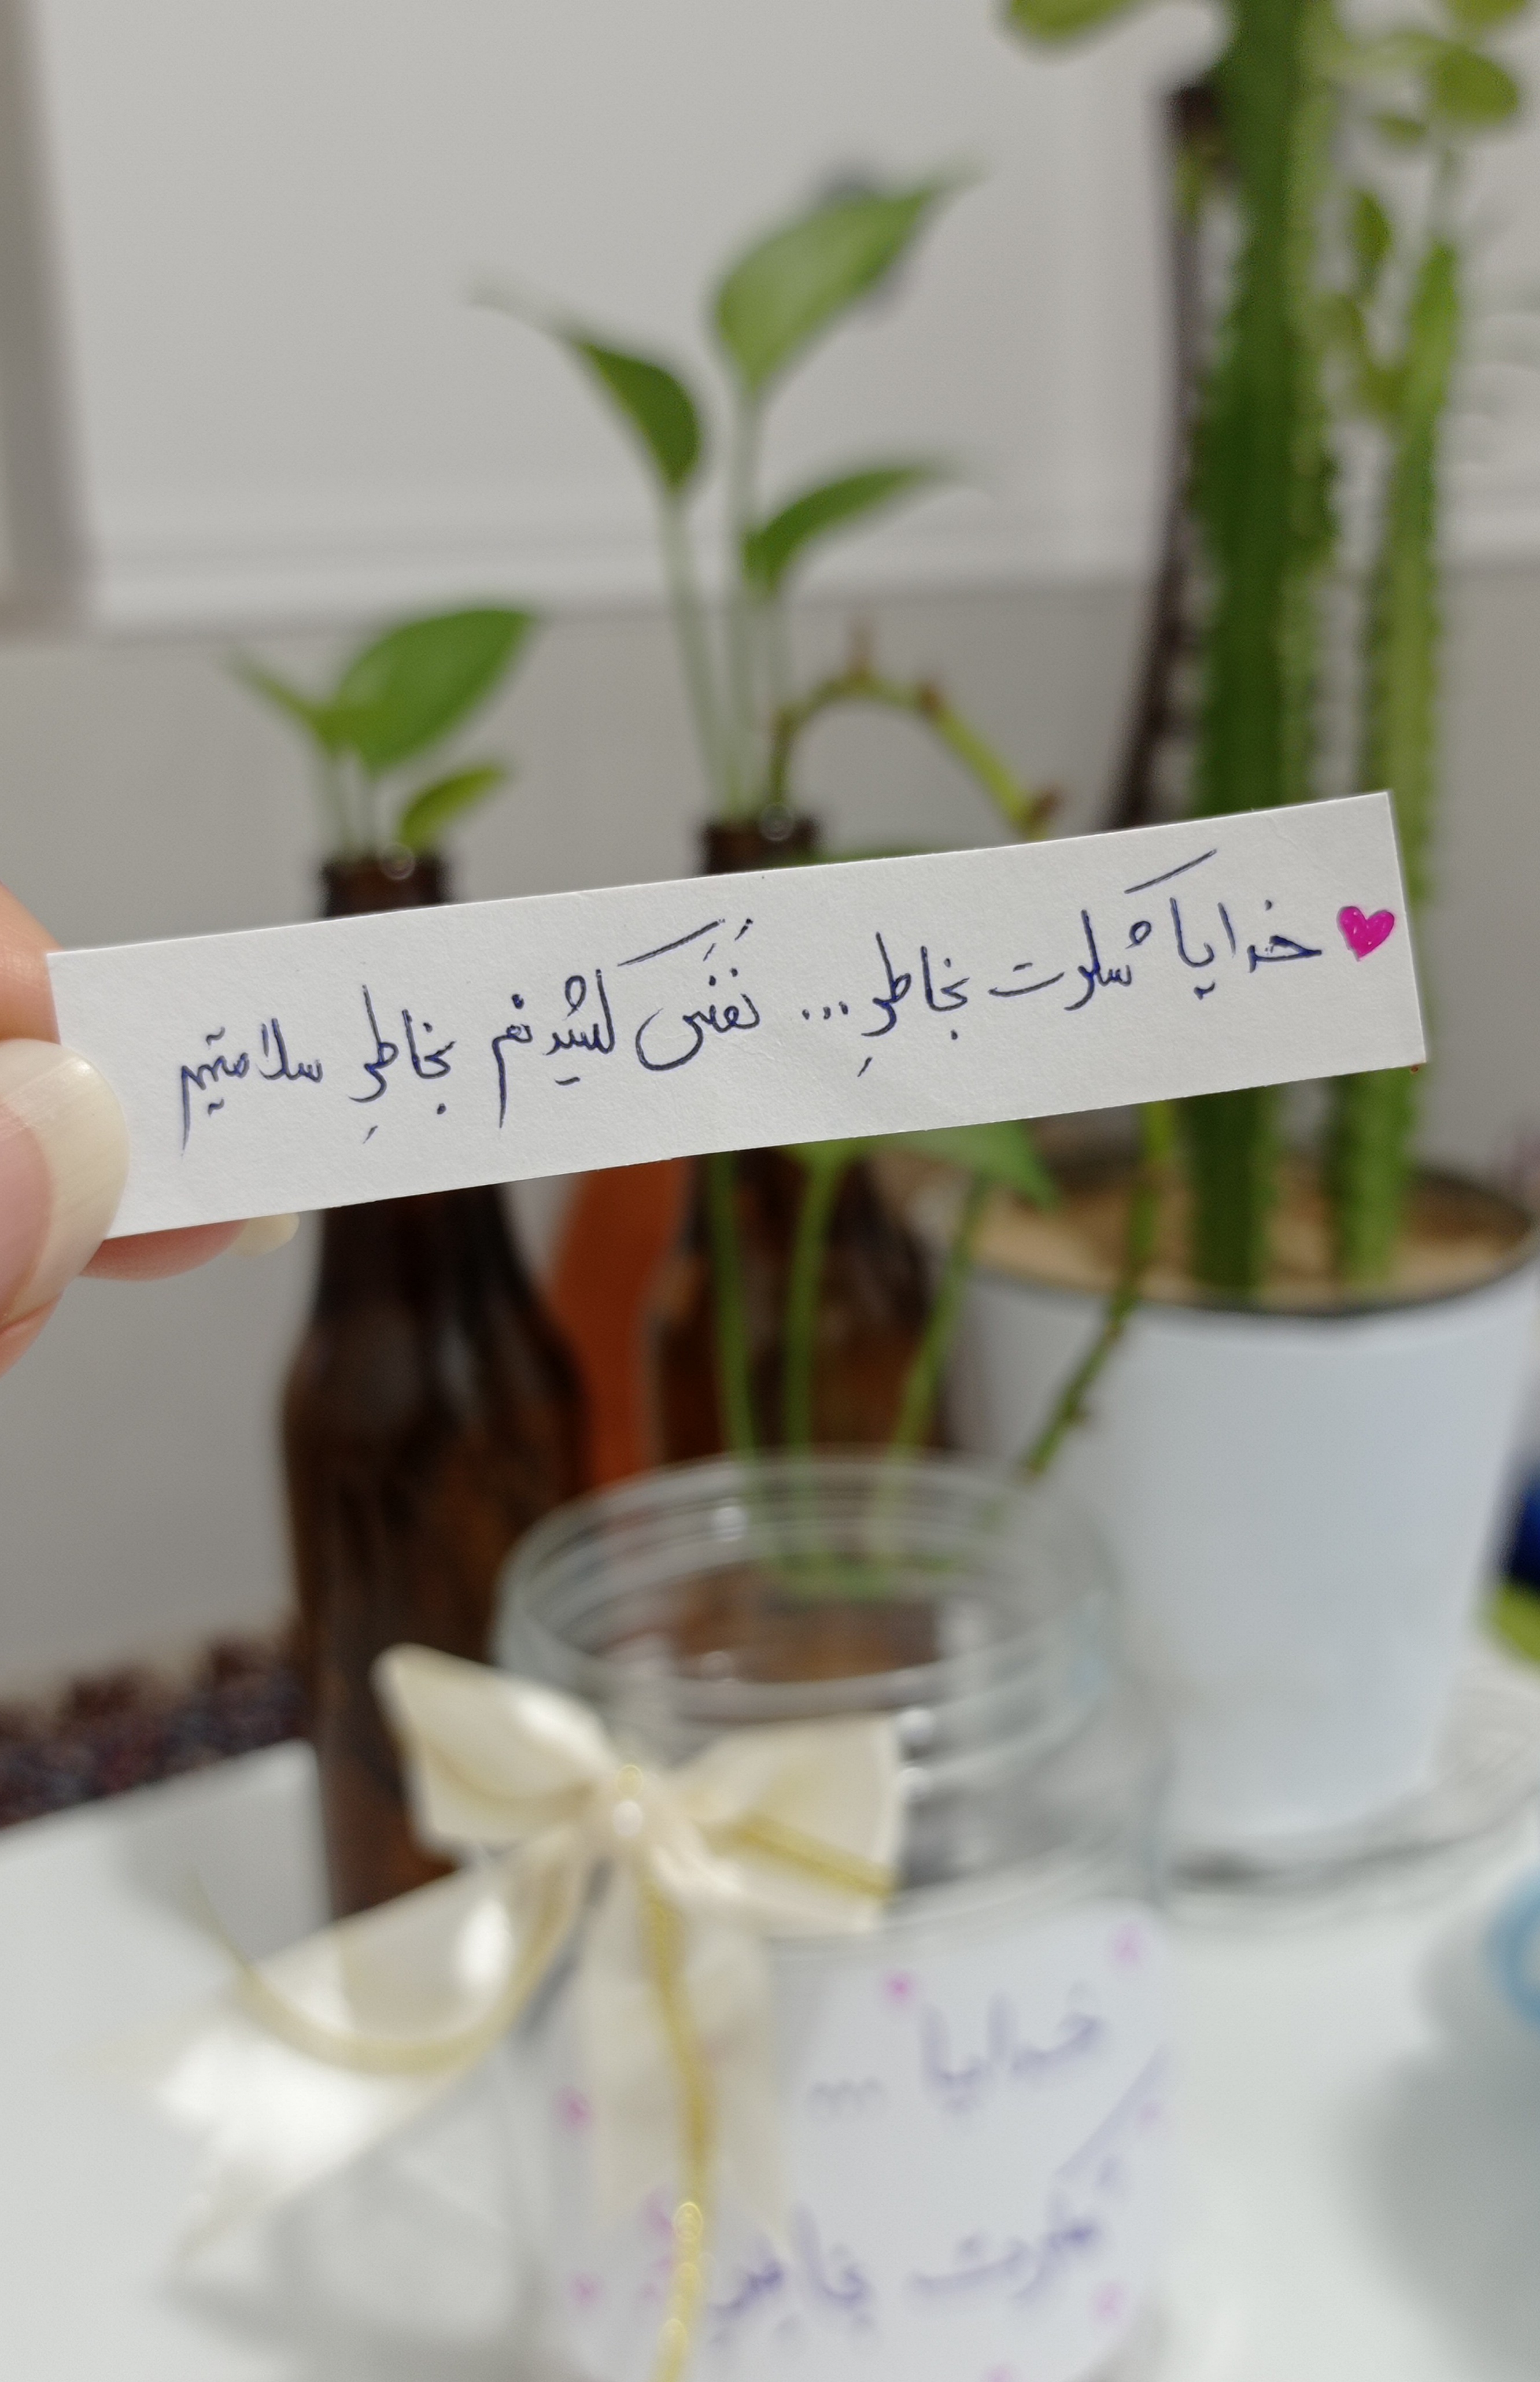 خدایا شکرت بخاطرِ... نَفَس کشیدنم بخاطرِ سلامتیم
خدایا ...
شکرت بخاطر